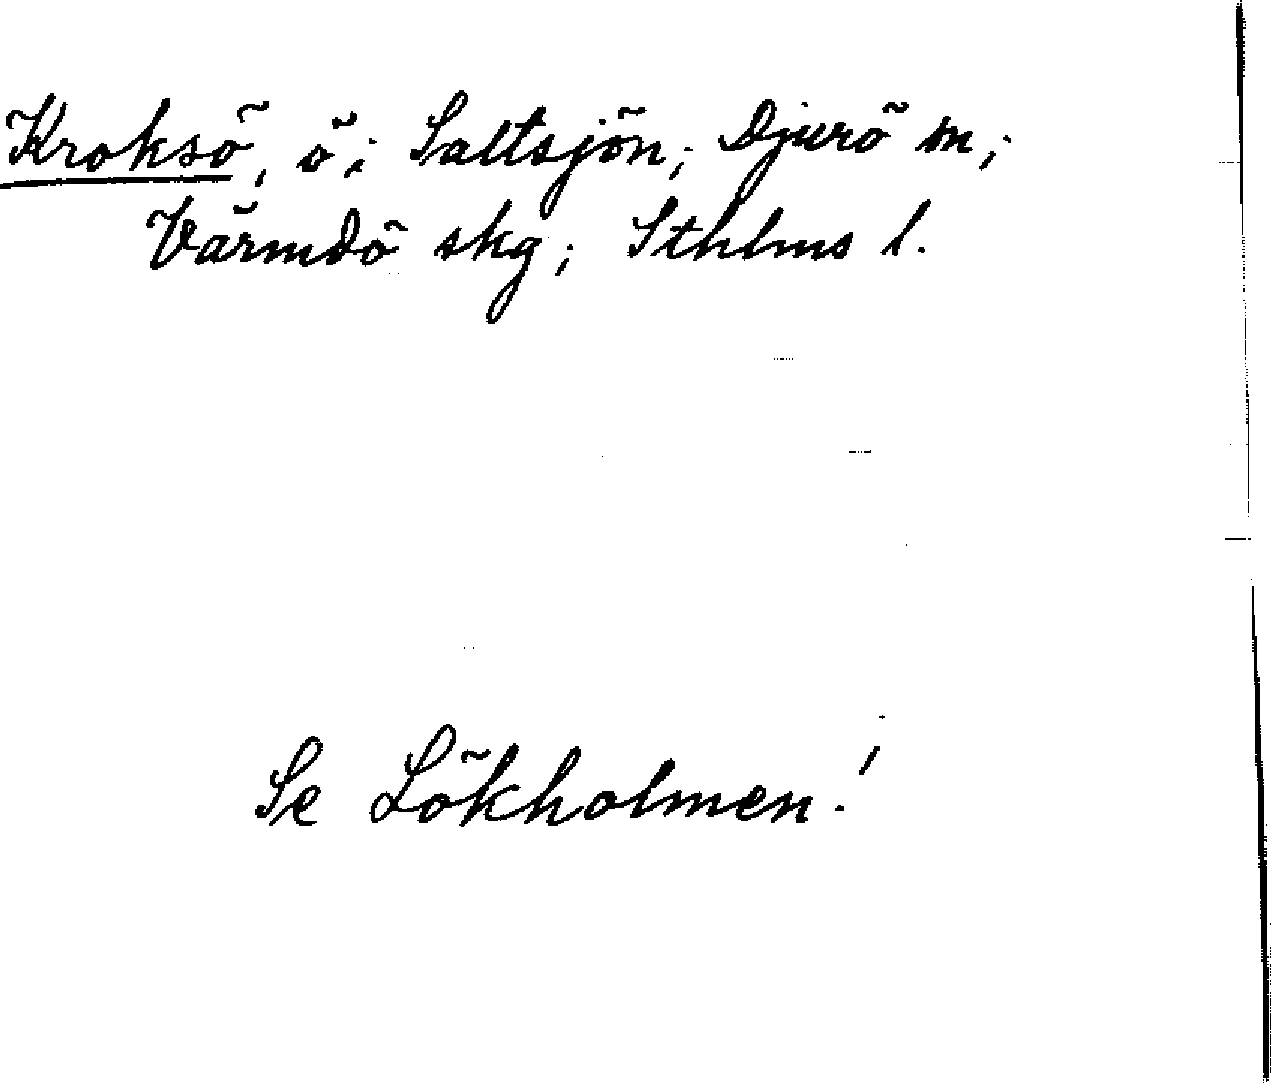 Kroksö, ö i Saltsjön; Djurö sn;
Värmdö skg; Sthlms l.
Se Lökholmen!